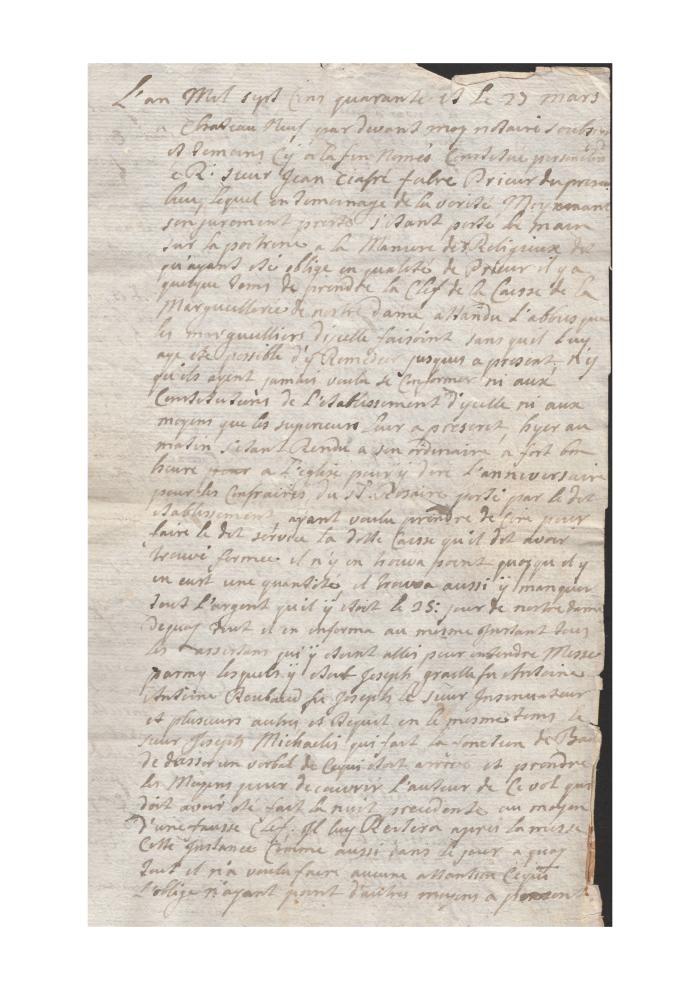 L'an Mil sept Cens quarante et Le 27 mars
a Chateau Neuf pardevant moy notaire soubs
et temoins Cy a la fin només Constitué personelem
R: sieur Jean Ciafré fabre Prieur du presen
lieu, lequel en temoinage de la verité Moyenant
son jurement presté s'etant porté la main
sur la poitrine a la Maniere des Religieux dit
qu'ayant eté oblige en qualité de Prieur il y a
quelque tems de prendre la Clef de la Caisse de la
Marguillerie de nostre dame attandu L'abus que
les marguilliers d'icelle faisoint sans quil luy
aye eté possible d'y Remedier jusques a present, n'y
qu'ils ayent jamais voulu se Conformer ni aux
Constitutions de L'etablissement d'ycelle ni aux
moyens que les superieurs leur a prescret, hyer au
matin s'etant Rendu a son ordinaire a fort bon
heure a L'eglise pour y dire L'anniversaire
pour les Confraires du St. Rosaire porté par le dit
etablissement ayant voulu prendre de cire pour
faire le dit service la ditte Caisse qu'il dit avoir
trouvé fermee il n'y en trouva point quoyque il y
en eut une quantité, il trouva aussi y manquer
tout L'argent qu'il y etoit le 25: jour de nostre dame
Dequoy tout il en informa au mesme instant tous
les assistans qui y etoint allés pour entendre Messe
parmy lesquels y etoit Joseph graille fu Antoine
Antoine Roubaud fu Joseph le sieur Insinuateur
et plusieurs autres et Requit en le mesme tems le
sieur Joseph Michaelis qui fait la fonction de Bai
de dresser un verbal de Cequi etoit arrivé et prendre
les Moyens pour decouvrir L'auteur de Ce vol qui
doit avoir eté fait la nuit precedente au moyen
D'une fausse Clef. Il luy Reitera apres la messe
Cette Instance Comme aussi dans le jour a quoy
tout il n'a voulu faire aucune attantion Cequi
L'oblige n'ayant point d'autres moyens a present